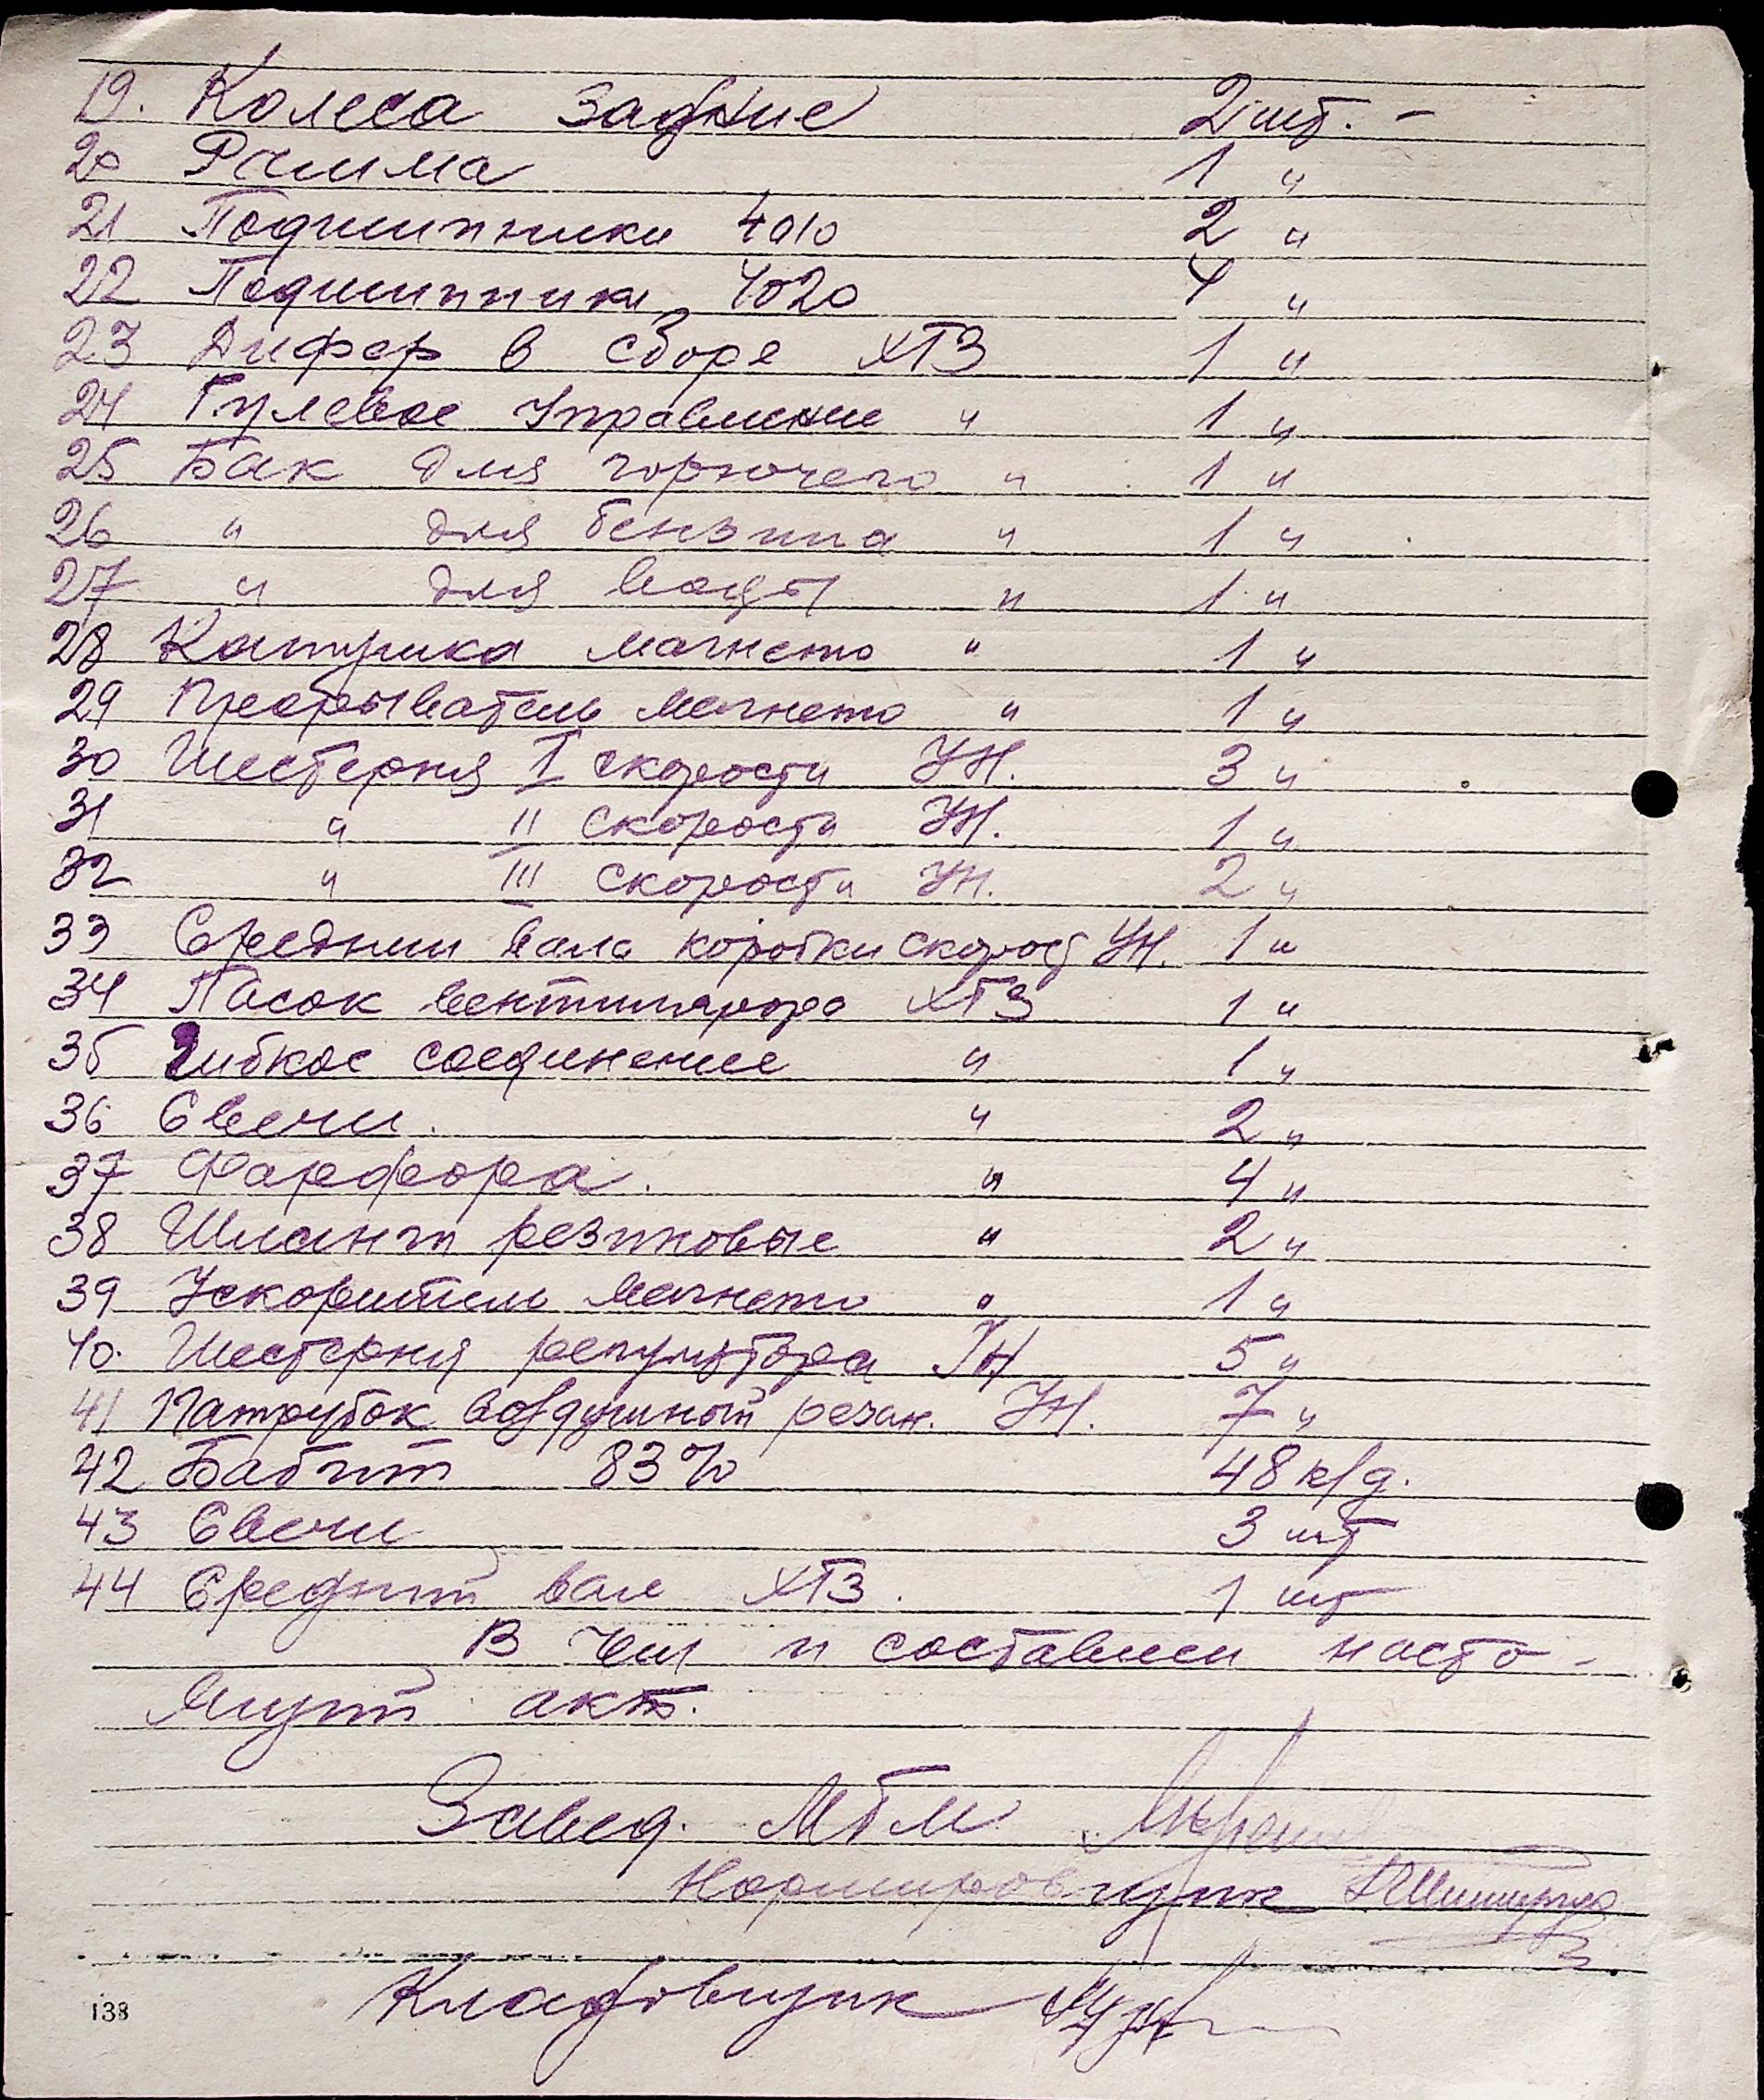 19. Колеса задние 2 шт. -
20 Рамма 1 "
21 Подшипники 4010 2 "
22 Подшипники 4020 4 "
23 Дифер в сборе ХТЗ 1 "
24 Рулевое управление " 1 "
25 Бак для горючего " 1 "
26 " для бензина " 1 "
27 " для воды " 1 "
28 Катушка магнето " 1 "
29 Прерыватель магнето " 1 "
30 Шестерня I скорости УН. 3 "
31 " II скорости УН. 1 "
32 " III скорости УН. 2 "
33 Средний вала коробки скорост УН. 1 "
34 Пасок вентилятора ХТЗ 1 "
35 Гибкое соединение " 1 "
36 Свечи. " 2 "
37 Фарфора. " 4 "
38 Шланги резиновые " 2 "
39 Ускоритель магнето " 1 "
40. Шестерня регулятора УН 5 "
41 Патрубок воздушный резин. УН. 7 "
42 Бабит 83% 48 к/г.
43 Свечи 3 шт
44 Средний вал ХТЗ. 1 шт
В чем и составлен насто-
ящий акт.
Завед. МТМ
Нормировщик
Кладовщик
138